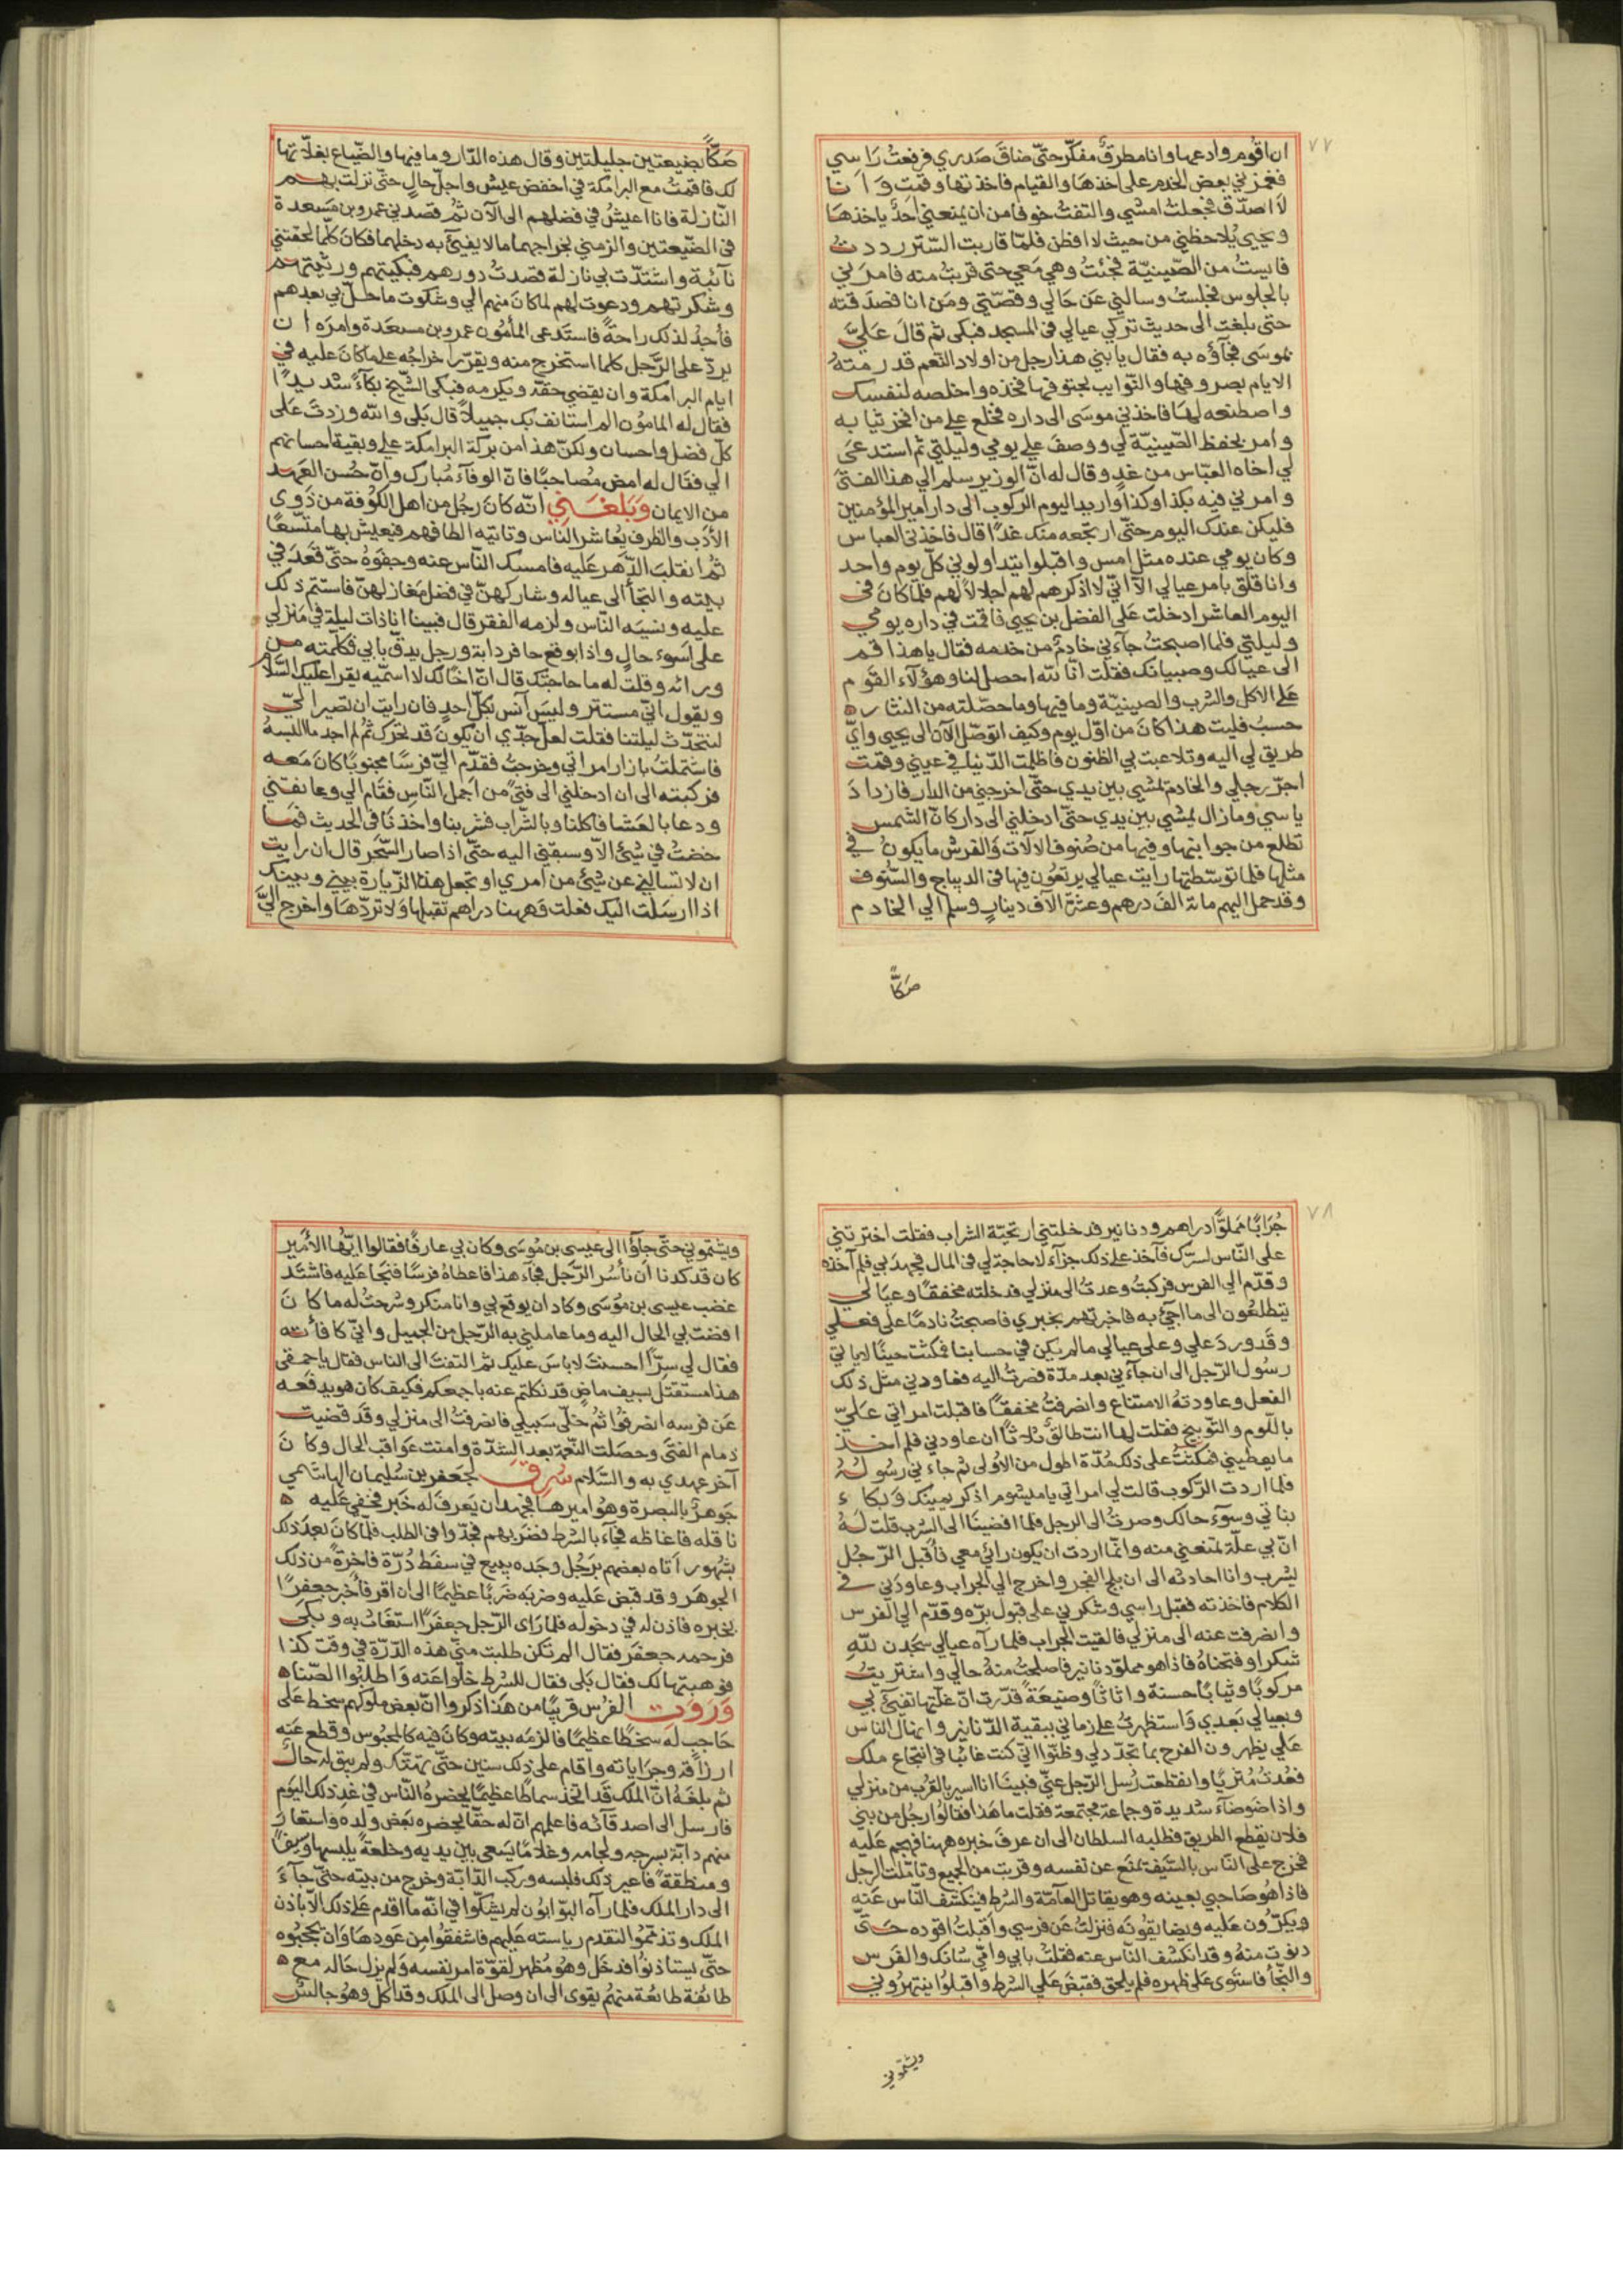 ٧٧
ان اقوم وادعها وانا مطرقٌ مفكّر حتّى ضاقَ صَدري فرفعتُ رَاسي
فغمزني بعض الخدم على اخذهَا والقيام فاخذتها وقمت وَانا
لَا اصدّق فجعلتُ امشي والتفتُ خوفا من ان يمنعني احَدٌ ياخذهَا
ويحيى يُلاحظني من حيث لا افطن فلمّا قاربت السّتر رددتُ
فايستُ من الصّينيّة فجئتُ وهي مَعي حتى قربتُ منه فامرَني
بالجلوس فجلستُ وسالني عَن حَالي وقصّتي ومَن انا فصَدقته
حتى بلغت الى حديث تركي عيالي في المسجد فبكى ثم قالَ عَليَّ
بموسَى فجآؤه به فقال يا بني هذا رجل من اولاد النّعم قد رمتهُ
الايام بصروفها والنّوايب بحتوفها فخذه واخلصه لنفسك
واصطنعه لهَا فاخذني موسَى الى داره فخلع علي من افخر ثيابه
وامر بحفظ الصّينيّة لي ووصفَ علي يومي وليلتي ثم استدعَى
لي اخاه العبّاس من غدٍ وقال له انّ الوزير سلم الي هذا الفتَى
وامرني فيه بكذا وكذا واريد اليوم الركوب الى دار امير المؤمنين
فليكن عندك اليوم حتّى ارتجعه منك غدًا قال فاخذنى العباس
وكان يومي عنده مثل امس واقبلوا يتداولوني كلّ يوم واحد
وانا قلق بامر عيالي الّا انّي لا اذكرهم لهم اجلالًا لهم فلمّا كانَ في
اليوم العاشر ادخلت عَلى الفضل بن يحيى فاقمت في داره يومي
وليلتي فلما اصبحتُ جآءني خادمٌ من خدمه فقال يا هذا قم
الى عيالك وصبيانك فقلت انّا للّه احصل لنا وهؤلآء القوم
عَلى الاكل والشرب والصينيّة وما فيها وما حصّلته من النثار ه
حسبُ فليت هذا كانَ من اوّل يوم وكيف اتوصّل الآن الى يحيى وايّ
طريق لي اليه وتلاعبت بي الظنون فاظلمت الدّنيا في عيني وقمت
اجرّ رجلي والخادم يمشي بين يدي حتّى اخرجني من الدار فازدادَ
ياسي وما زال يمشي بين يدي حتّى ادخلني الى دار كانّ الشمس
تطلع من جوانبها وفيها من صُنوف الآلات وَالفرش ما يكونُ في
مثلها فلما توسّطتها رايت عيالي يرتعُون فيها في الديباج والسّتوف
وقد حمل اليهم مائة الفَ درهم وعشرة آلاف دينارٍ وسلم الي الخادم
صَكًّا
صَكًّا بضيعتين جليلتين وقال هذه الدّار وما فيها والضّياع بغلّاتها
لك فاقمتُ مع البرامكة في اخفض عيشٍ واجلّ حالٍ حتّى نزلت بهم
النّازلة فانا اعيشُ في فضلهم الى الآن ثُمّ قصدني عمرو بن مَسعدة
في الضّيعتين والزمني لخراجهما ما لا يفيئ به دخلهما فكانَ كلّما لحقتني
نآئبة واشتدّت بي نازلة قصدتُ دورهم فبكيتهم ورثيتهم
وشكرتهم ودعوت لهم لما كانَ منهم الي وشكوت ما حلّ بي بعدهم
فأجدُ لذلك راحةً فاستَدعى المأمُون عمرو بن مسعَدة وامرَه ان
يردّ على الرَّجل كلما استخرج منه ويقرّر خراجه على ما كانَ عليه في
ايام البرامكة وان يقضي حقّه ويكرمه فبكى الشّيخ بكآءً شديدًا
فقال له المامُون الم استانف بك جميلًا قال بَلى واللّه وزدتَ عَلى
كلّ فضل واحسان ولكنّ هذا من بركة البرامكة علي وبقية احسانهم
الي فقَال له امض مُصاحبًا فانّ الوفآءَ مُبارك وانّ حُسن العَهد
من الايمان وَبَلغَني انّه كانَ رجُل من اهل الكُوفة من ذَوى
الأدَب والظرف يُعَاشر الناس وتاتيه الطافهم فيعيش بها متّسعًا
ثُمّ انقلبَ الدّهَر عَليه فامسك النّاس عنه وجفَوهُ حتّى قعَدَ في
بيته والتجأ الى عياله وشاركهنّ في فضل مَغازلهنّ فاستتم ذلك
عليه ونسيَه النّاس ولزمه الفقر قال فبينا انا ذات ليلة في مَنزلي
على اَسوء حالٍ واذا بوقع حافر دابّة ورجل يدقّ بابي فكلّمته من
ورائه وقلت له ما حاجتك قال انّ اخًا لك لا اسمّيه يقرا عليك السّلام
ويقول انّي مستتر وليسَ آنس بكلّ احدٍ فان رايت ان تصير اليّ
لنتحدّث ليلتنا فقلت لعل جدّي ان يكونَ قد تحرّك ثُمّ لم اجد ما البسهُ
فاشتملتُ بازار امراتي وخرجتُ فقدّم اليّ فرسًا مجنوبًا كانَ مَعَه
فركبته الى ان ادخلني الى فتىً من اَجمل النّاسِ فقَام الي وعانقني
ودعا بالعَشا فاكلنا وبالشّراب فشربنا واخذنَا في الحديث فمَا
خضتُ في شيئ الّا وسبقني اليه حتّى اذا صار السّحَر قال ان رايت
ان لا تسالني عن شيئ من امري او تجعل هذا الزّيارة بيني وبينك
اذا ارسَلت اليك فعلت وَههنا دراهم تقبلها وَلا تردّهَا واخرج اليَّ
٧٨
جُرَابًا مَملوّا دراهم ودنانير فدخلتني ارتحيّة الشراب فقلت اخترتني
على النّاس لسرّك فآخذ على ذلك جزآءً لا حاجة لي في المال فجهدَ بي فلم آخذه
وقدّم الي الفرس فركبتُ وعدتُ الى منزلي فدخلته مخفقًا وعيَالي
يتطلعُون الى ما اجيئُ به فاخبرتهم بخبري فاصبحتُ نادمًا على فعلي
وقَد ورَدَ علي وعلى عيالي ما لم يكن في حسابنا فمكثت حينًا لا ياتيني
رسُول الرّجل الى ان جآءني بعد مدّة فصرتُ اليه فعَاودني مثل ذلك
الفعل وعاودتهُ الامتناع وانصرفتُ مخفقًا فاقبلت امراتي عَليّ
باللّوم والتّوبيخ فقلت لها انت طالقٌ ثلاثًا ان عاودني فلم آخذ
ما يعطيني فمكثتُ على ذلك مُدّة اطول من الاوُلى ثم جاءني رسُولهُ
فلما اردت الرّكوب قالت لي امراتي يا ميشوم اذكر يمينك وَبكاء
بناتي وسوَء حالك وصرتُ الى الرجل فلما افضينَا الى الشرب قلت لَهُ
انّ بي علّة تمنعني منه وانّما اردت ان يكون رائي معي فأقبل الرّجُل
يشرب وانا احادثه الى ان بلج الفجر واخرج الي الجراب وعاودَني في
الكلام فاخذته فقبل راسي وشكرني على قبول برّه وقدّم الي الفرس
وانصرفت عنه الى منزلي فالقيت الجراب فلما رآه عيالي سجَدن للّهِ
شكرًا وفتحناهُ فاذا هو مملوّ دنانير فاصلحتُ منهُ حالي واشتريتُ
مركوبًا وثيابًا حسنة واثاثًا وضيعَةً قدّرت انّ غلّتها تفيئ بي
وبعيالي بَعدي وَاستظهرتُ على زماني ببقية الدّنانير وانثال الناس
عَلي يظهرون الفرح بما تجدّد لي وظنّوا انّي كنت غائبًا في انتجاع ملك
فعُدتُ مُثريًا وانقطعت رُسل الرّجل عنّي فبينَا انا اسير بالقُرب من منزلي
واذا ضَوضآء شديدة وجماعة مجتمعة فقلت ما هَذا فقالوُا رجُل من بني
فلان يقطع الطريق فطلبه السلطان الى ان عرفَ خبره ههنا فهجم عَليه
فخرج على النّاس بالسّيَف يَمنَع عن نفسه وقربت من الجميع وتامّلت الرجل
فاذا هُو صَاحبي بعينه وهو يقاتل العَآمّة والشرط فينكشف النّاس عَنه
ويكرُّون عَليه ويضايقُونَه فنزلتُ عَن فرسي واَقبلتُ اقوده حَتّى
دنوَت منهُ وقد انكشف الناس عنه فقلتُ بابي وامّي شانك والفَرس
والنّجأ فاستوَى عَلى ظهره فلم يلحق فقبضَ عَلي الشرط واَقبلُوا ينتهرُوني
ويشتموني
ويشتموني حتّى جآؤا الى عيسى بن مُوسَى وكان بي عارفًا فقالوا ايّها الأمير
كان قد كدنا ان نأسُر الرّجل فجآء هذا فاعطاهُ فرسًا فنجَا عَليه فاشتَد
غضب عيسى بن مُوسَى وكاد ان يوقع بي وانا منكر وشرحتُ له ما كانَ
افضت بي الحال اليه وما عاملني به الرّجل من الجميل وانّي كافأته
فقال لي سِرًّا احسنتَ لا باسَ عليك ثم التفتَ الى الناس فقال يا حمقى
هذا مستقتل بسيف ماضٍ قد نكلتم عنه باجمعكم فكيف كان هو يدفعَه
عَن فرسه انصرفُوا ثُم خلّى سَبيلي فانصرفتُ الى منزلي وقَد قضيت
ذمام الفتَى وحصَلت النّعمة بعد الشدّة وامنت عَواقب الحال وكانَ
آخر عهدي به والسّلام سُرِق لجَعفر بن سُليمان الهاشمي
جَوهرٌ بالبصرة وهُو اميرهَا فجهد ان يَعرفَ له خَبر فخفي عَليه ه
ناقله فاغاظه فجآء بالشرط فضَرَبهم فجدّوا في الطلب فلمّا كانَ بعدَ ذلك
بشهور اتاه بعضهم برَجُل وجَده يبيع في سفَط دُرّة فاخرةً من ذلك
الجوهَر وقد قبض عَليه وضربَه ضَربًا عظيمًا الى ان اقر فأُخبر جعفرًا
بخبره فاذن له في دخوله فلما رَاى الرّجل جعفرًا استغَاث به وبكَى
فرحمه جعفَر فقال الم تكن طلبت منّي هذه الدّرّة في وقت كذا
فوهبتها لك فقال بَلى فقال للشرط خلوا عَنه وَاطلبُوا الصّناه
وَرَوَت الفرُس قريبًا من هَذا ذكروا انّ بعض ملوكهم سخط عَلى
حَاجبٍ له سخطًا عظيمًا فالزمَه بيته وكانَ فيه كالمحبُوس وقطع عَنه
ارزاقه وجرَاياته واقام على ذلك سنين حتّى تهتّك ولم يبق له حالٌ
ثم بلغَهُ انّ الملك قَد اتخذ سماطًا عظيمًا يحضرهُ النّاس في غدِ ذلك اليَوم
فارسل الى اصدقآئه فاعلمهم انّ له حقًا يحضره بَعض ولده وَاستعَارَ
منهم دابّة بسرجه ولجامه وغلامًا يَسعى بين يديه وخلعَةً يلبسها وَسيفًا
ومنطقةً فاعير ذلك فلبسه وركب الدّابّة وخرج من بيته حتّى جآءَ
الى دار الملك فلما رآه البوّابُون لم يشكّوا في انّه ما اقدم عَلى ذلك الّا باذن
الملك وتذمّموُا لتقدم رياسته عَليهم فاشفقُوا من عَودهَا وَان يحجبُوه
حتّى يستاذنوُا فدخَل وهُو مُظهر لقوّة امر نفسه وَلم يزل حَاله مع ه
طائفة طائعة منهُم يقوى الى ان وصل الى الملك وقد اكل وهُو جالسٌ